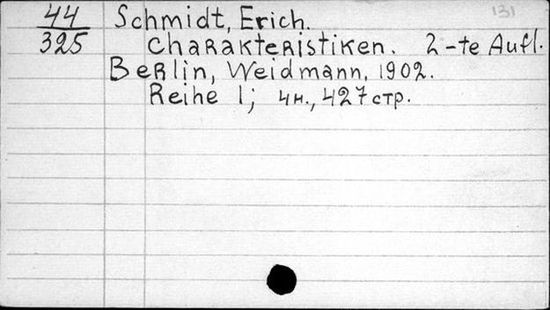 44 Schmidt, Erich. 131
325 Charakteristiken. 2-te Aufl.
Berlin, Weidmann, 1902.
Reihe 1; 4н., 427 стр.